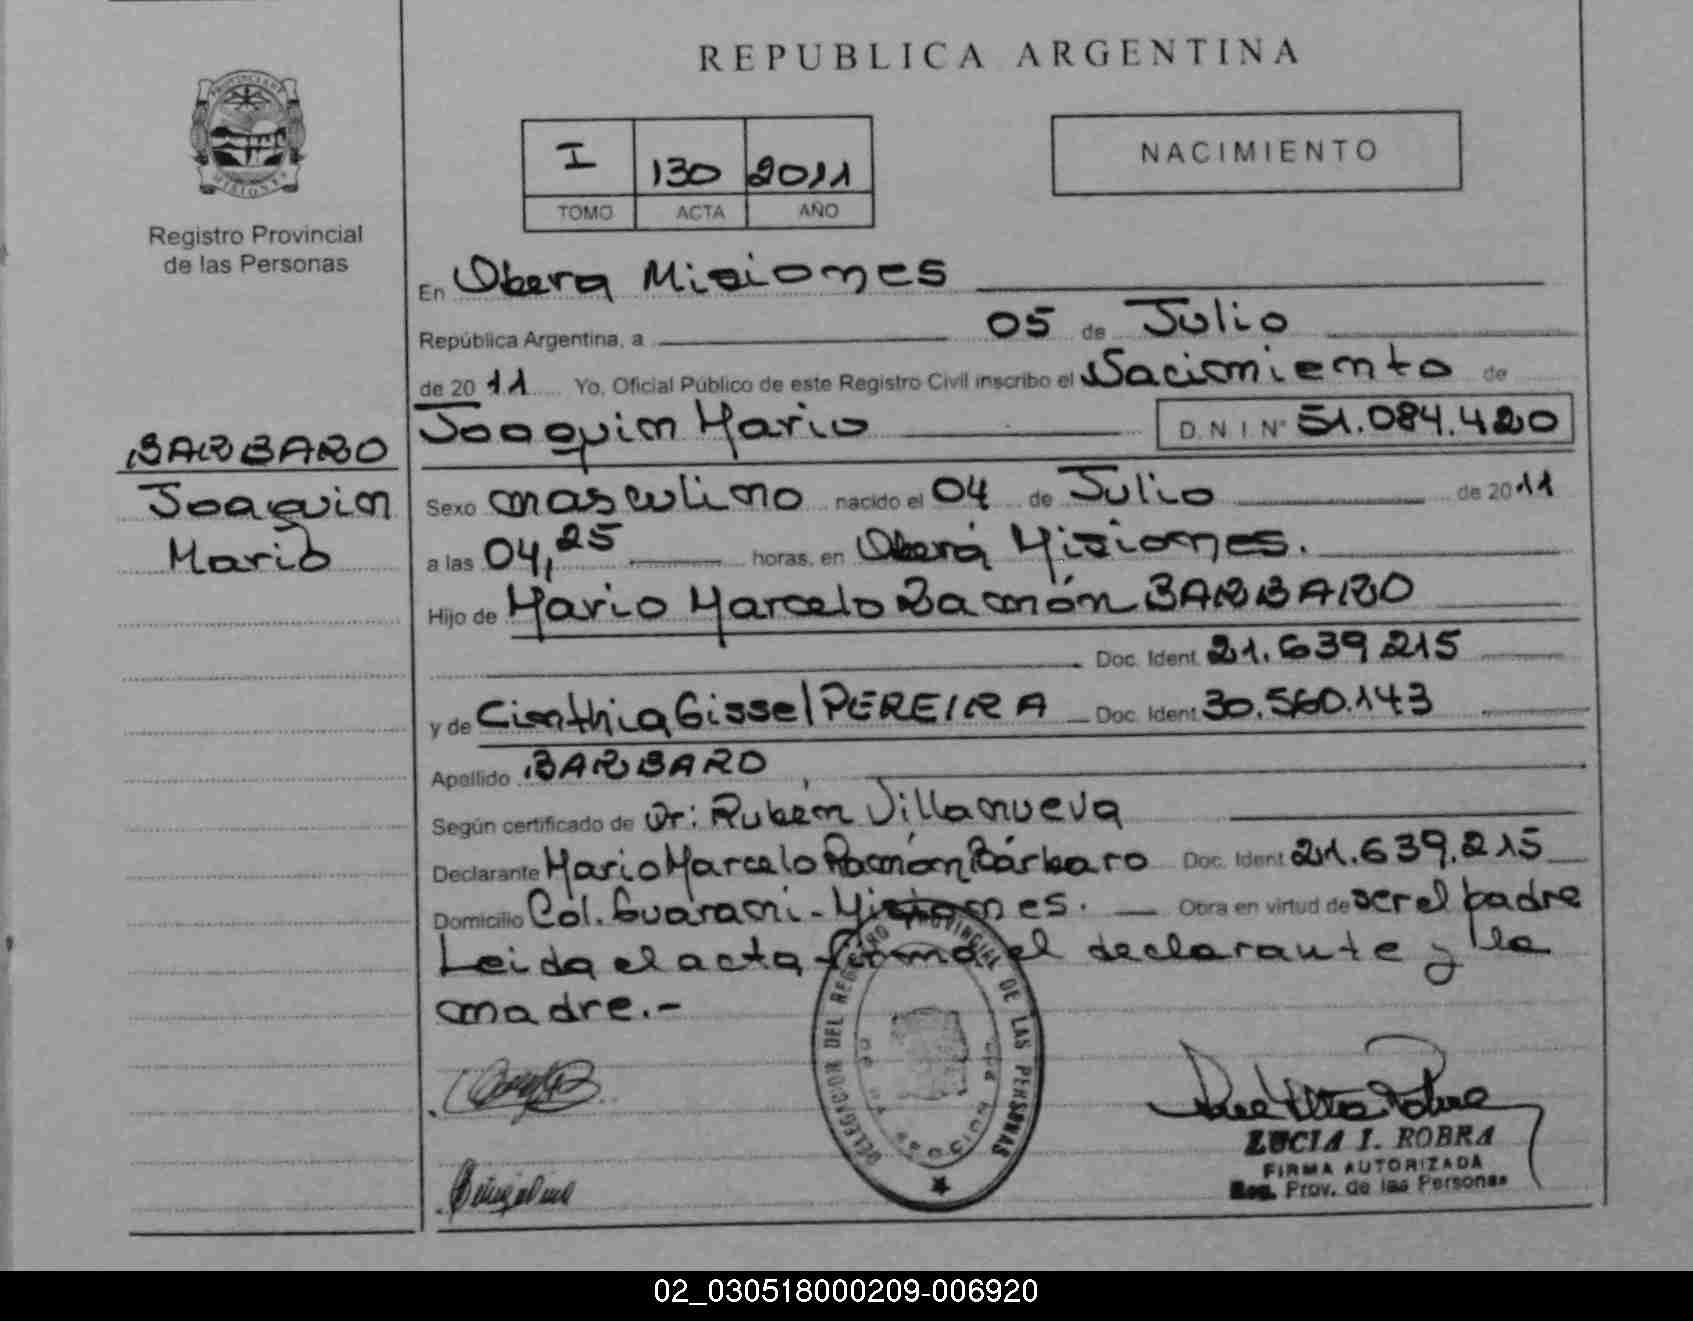 REPUBLICA ARGENTINA
I 130 2011
TOMO ACTA AÑO
NACIMIENTO
PROVINCIA DE MISIONES
Registro Provincial
de las Personas
En Obera Misiones
República Argentina, a 05 de Julio
de 2011 Yo, Oficial Público de este Registro Civil inscribo el Nacimiento de
Joaquin Mario D.N.I Nº 51.084.420
BARBARO
Joaquin
Mario
Sexo masculino nacido el 04 de Julio de 2011
a las 04,25 horas, en Oberá Misiones.
Hijo de Mario Marcelo Ramón BARBARO
Doc. Ident. 21.639.215
y de Cinthia Gissel PEREIRA Doc. Ident. 30.560.143
Apellido BARBARO
Según certificado de Dr: Rubén Villanueva
Declarante Mario Marcelo Ramón Bárbaro Doc. Ident 21.639.215
Domicilio Col. Guarani - Misiones. Obra en virtud de ser el padre
Leida el acta firma el declarante y la
madre.-
DEL REGISTRO PROVINCIAL DE LAS PERSONAS
LUCIA I. ROBRA
FIRMA AUTORIZADA
Reg. Prov. de las Personas
02_030518000209-006920